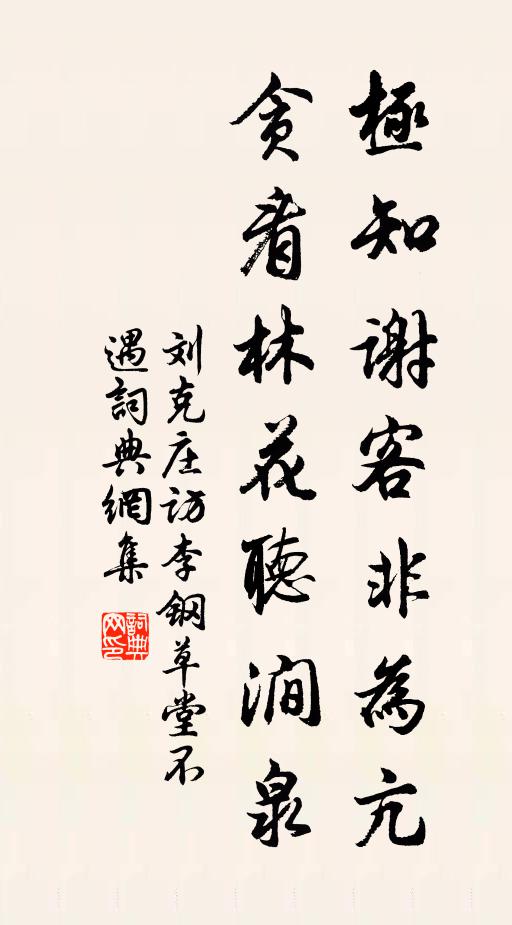 極知謝客非為亢
貪看林花聽澗泉
刘克庄访李鋼草堂不
遇詞典網集
詞典网印